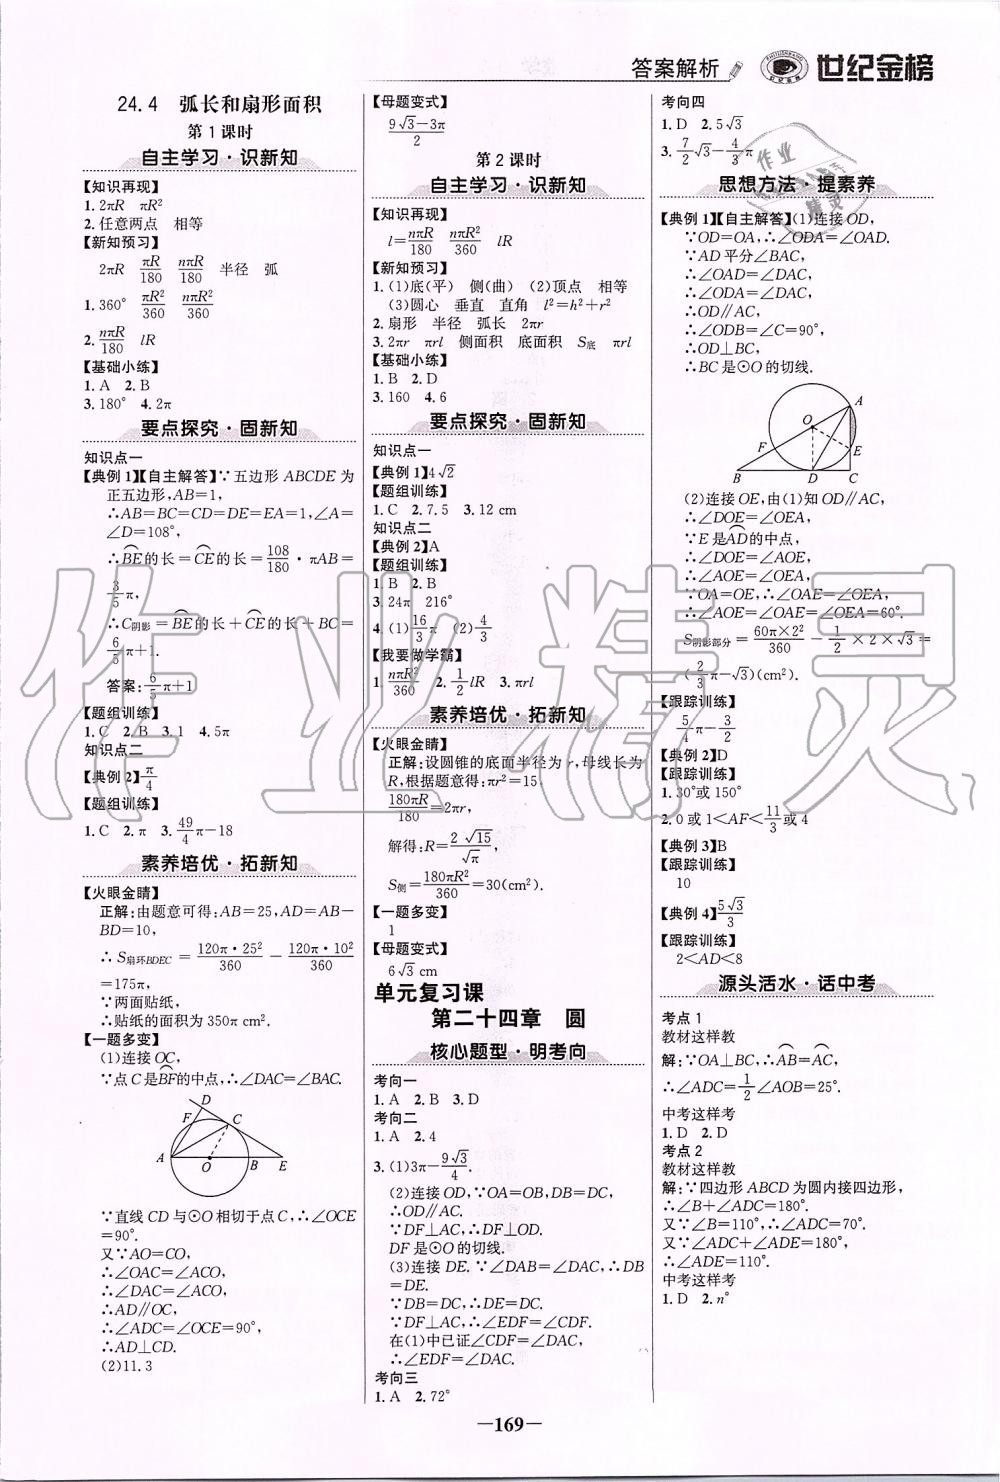 答案解析 世纪金榜
24.4 弧长和扇形面积
第1课时
自主学习·识新知
【知识再现】
1.2πR πR²
2.任意两点 相等
【新知预习】
2πR πR/180 nπR/180 半径 弧
1.360° πR²/360 nπR²/360
2.nπR/180 lR
【基础小练】
1.A 2.B
3.180° 4.2π
要点探究·固新知
知识点一
【典例1】【自主解答】∵五边形ABCDE为
正五边形,AB=1,
∴AB=BC=CD=DE=EA=1,∠A=
∠D=108°,
∴BE的长=CE的长=108/180·πAB=
3/5π,
∴C阴影=BE的长+CE的长+BC=
6/5π+1.
答案:6/5π+1
【题组训练】
1.C 2.B 3.1 4.5π
知识点二
【典例2】π/4
【题组训练】
1.C 2.π 3.49/4π-18
素养培优·拓新知
【火眼金睛】
正解:由题意可得:AB=25,AD=AB-
BD=10,
∴S扇环BDEC=120π·25²/360-120π·10²/360
=175π,
∵两面贴纸,
∴贴纸的面积为350π cm².
【一题多变】
(1)连接OC,
∵点C是BF的中点,∴∠DAC=∠BAC.
D
F C
A O B E
∵直线CD与⊙O相切于点C,∴∠OCE
=90°.
又∵AO=CO,
∴∠OAC=∠ACO,
∴∠DAC=∠ACO,
∴AD∥OC,
∴∠ADC=∠OCE=90°,
∴AD⊥CD.
(2)11.3
【母题变式】
(9√3-3π)/2
第2课时
自主学习·识新知
【知识再现】
l=nπR/180 nπR²/360 lR
【新知预习】
1.(1)底(平) 侧(曲) (2)顶点 相等
(3)圆心 垂直 直角 l²=h²+r²
2.扇形 半径 弧长 2πr
3.2πr πrl 侧面积 底面积 S底 πrl
【基础小练】
1.B 2.D
3.160 4.6
要点探究·固新知
知识点一
【典例1】4√2
【题组训练】
1.C 2.7.5 3.12 cm
知识点二
【典例2】A
【题组训练】
1.B 2.B
3.24π 216°
4.(1)16/3π (2)4/3
【我要做学霸】
1.nπR²/360 2.1/2lR 3.πrl
素养培优·拓新知
【火眼金睛】
正解:设圆锥的底面半径为r,母线长为
R,根据题意得:πr²=15,
180πR/180=2πr,
解得:R=2√15/√π,
S侧=180πR²/360=30(cm²).
【一题多变】
1
【母题变式】
6√3 cm
单元复习课
第二十四章 圆
核心题型·明考向
考向一
1.A 2.B 3.D
考向二
1.A 2.4
3.(1)3π-9√3/4.
(2)连接OD,∵OA=OB,DB=DC,
∴OD∥AC.
∵DF⊥AC,∴DF⊥OD.
DF是⊙O的切线.
(3)连接DE.∵∠DAB=∠DAC,∴DB
=DE.
∵DB=DC,∴DE=DC.
∵DF⊥AC,∴∠EDF=∠CDF.
在(1)中已证∠CDF=∠DAC,
∴∠EDF=∠DAC.
考向三
1.A 2.72°
考向四
1.D 2.5√3
3.7/2√3-4/3π
思想方法·提素养
【典例1】【自主解答】(1)连接OD,
∵OD=OA,∴∠ODA=∠OAD.
∵AD平分∠BAC,
∴∠OAD=∠DAC,
∴∠ODA=∠DAC,
∴OD∥AC,
∴∠ODB=∠C=90°,
∴OD⊥BC,
∴BC是⊙O的切线.
A
O
F E
B D C
(2)连接OE,由(1)知OD∥AC,
∴∠DOE=∠OEA,
∵E是AD的中点,
∴∠DOE=∠AOE,
∴∠AOE=∠OEA,
∵OA=OE,∴∠OAE=∠OEA,
∴∠AOE=∠OAE=∠OEA=60°.
S阴影部分=60π×2²/360-1/2×2×√3=
(2/3π-√3)(cm²).
【跟踪训练】
5/4π-3/2
【典例2】D
【跟踪训练】
1.30°或150°
2.0或1<AF<11/3或4
【典例3】B
【跟踪训练】
10
【典例4】5√3/3
【跟踪训练】
2<AD<8
源头活水·话中考
考点1
教材这样教
解:∵OA⊥BC,∴AB=AC,
∴∠ADC=1/2∠AOB=25°.
中考这样考
1.D 2.D
考点2
教材这样教
解:∵四边形ABCD为圆内接四边形,
∴∠B+∠ADC=180°.
又∵∠B=110°,∴∠ADC=70°.
又∵∠ADC+∠ADE=180°,
∴∠ADE=110°.
中考这样考
1.D 2.n°
—169—
作业精灵